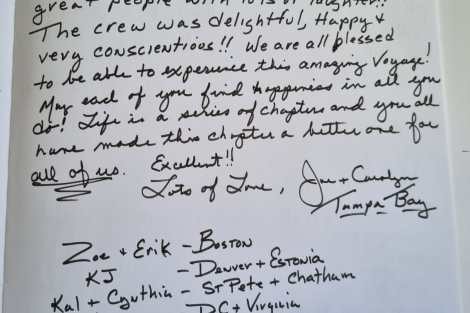 great people with lots of laughter!!
The crew was delightful, Happy +
very conscientious!! We are all blessed
to be able to experience this amazing Voyage!
May each of you find happiness in all you
do! Life is a series of chapters and you all
have made this chapter a better one for
all of us. Excellent!!
Lots of Love, Joe + Carolyn
Tampa Bay
Zoe + Erik - Boston
KJ - Denver + Estonia
Kal + Cynthia - St Pete + Chatham
DC + Virginia